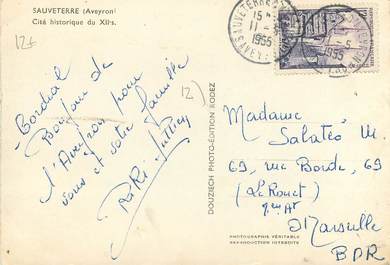 SAUVETERRE (Aveyron)
Cité historique du XII·s.
12€
Cordial
Bonjour de
l'Aveyron pour
vous et votre famille
12)
DOUZIECH PHOTO-ÉDITION RODEZ
SAUVETERRE
15
11 -
1955
AVEYRON
1955
Madame
M.
69, rue Borde, 69
(Le Rouet)
Marseille
BDR
PHOTOGRAPHIE VÉRITABLE
REPRODUCTION INTERDITE